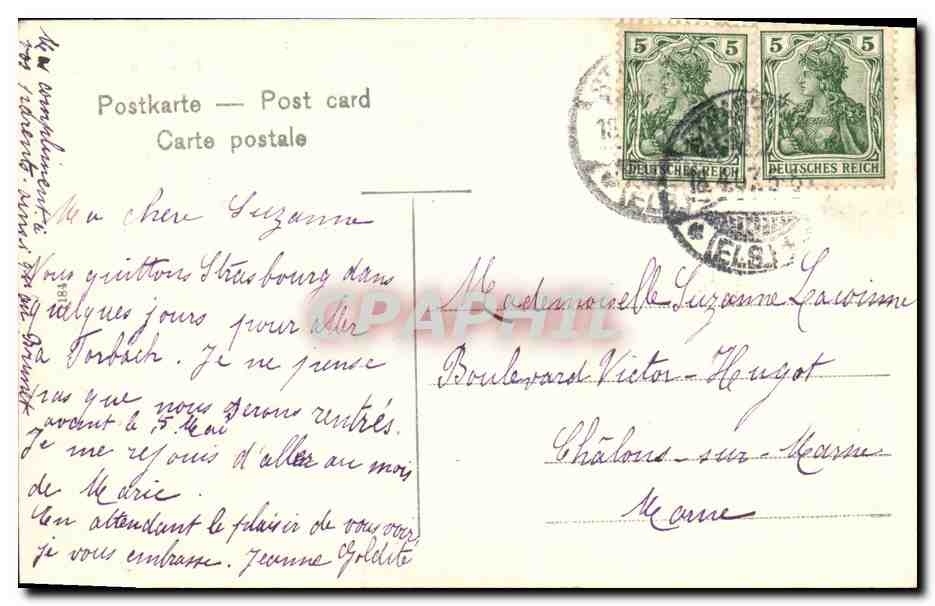 Postkarte — Post card
Carte postale
5 5
DEUTSCHES REICH
5 5
DEUTSCHES REICH
(ELS.)
(ELS.)
Ma chère Suzanne
Nous quittons Strasbourg dans
quelques jours pour aller
à Forbach. Je ne pense
pas que nous serons rentrés
avant le 5 Mai.
Je me rejouis d'aller au mois
de Marie.
En attendant le plaisir de vous voir
je vous embrasse. Jeanne
Mes compliments à
vos parents ainsi qu'au
Mademoiselle Suzanne
Boulevard Victor-Hugot
Châlons-sur-Marne
Marne
CPAPHIL